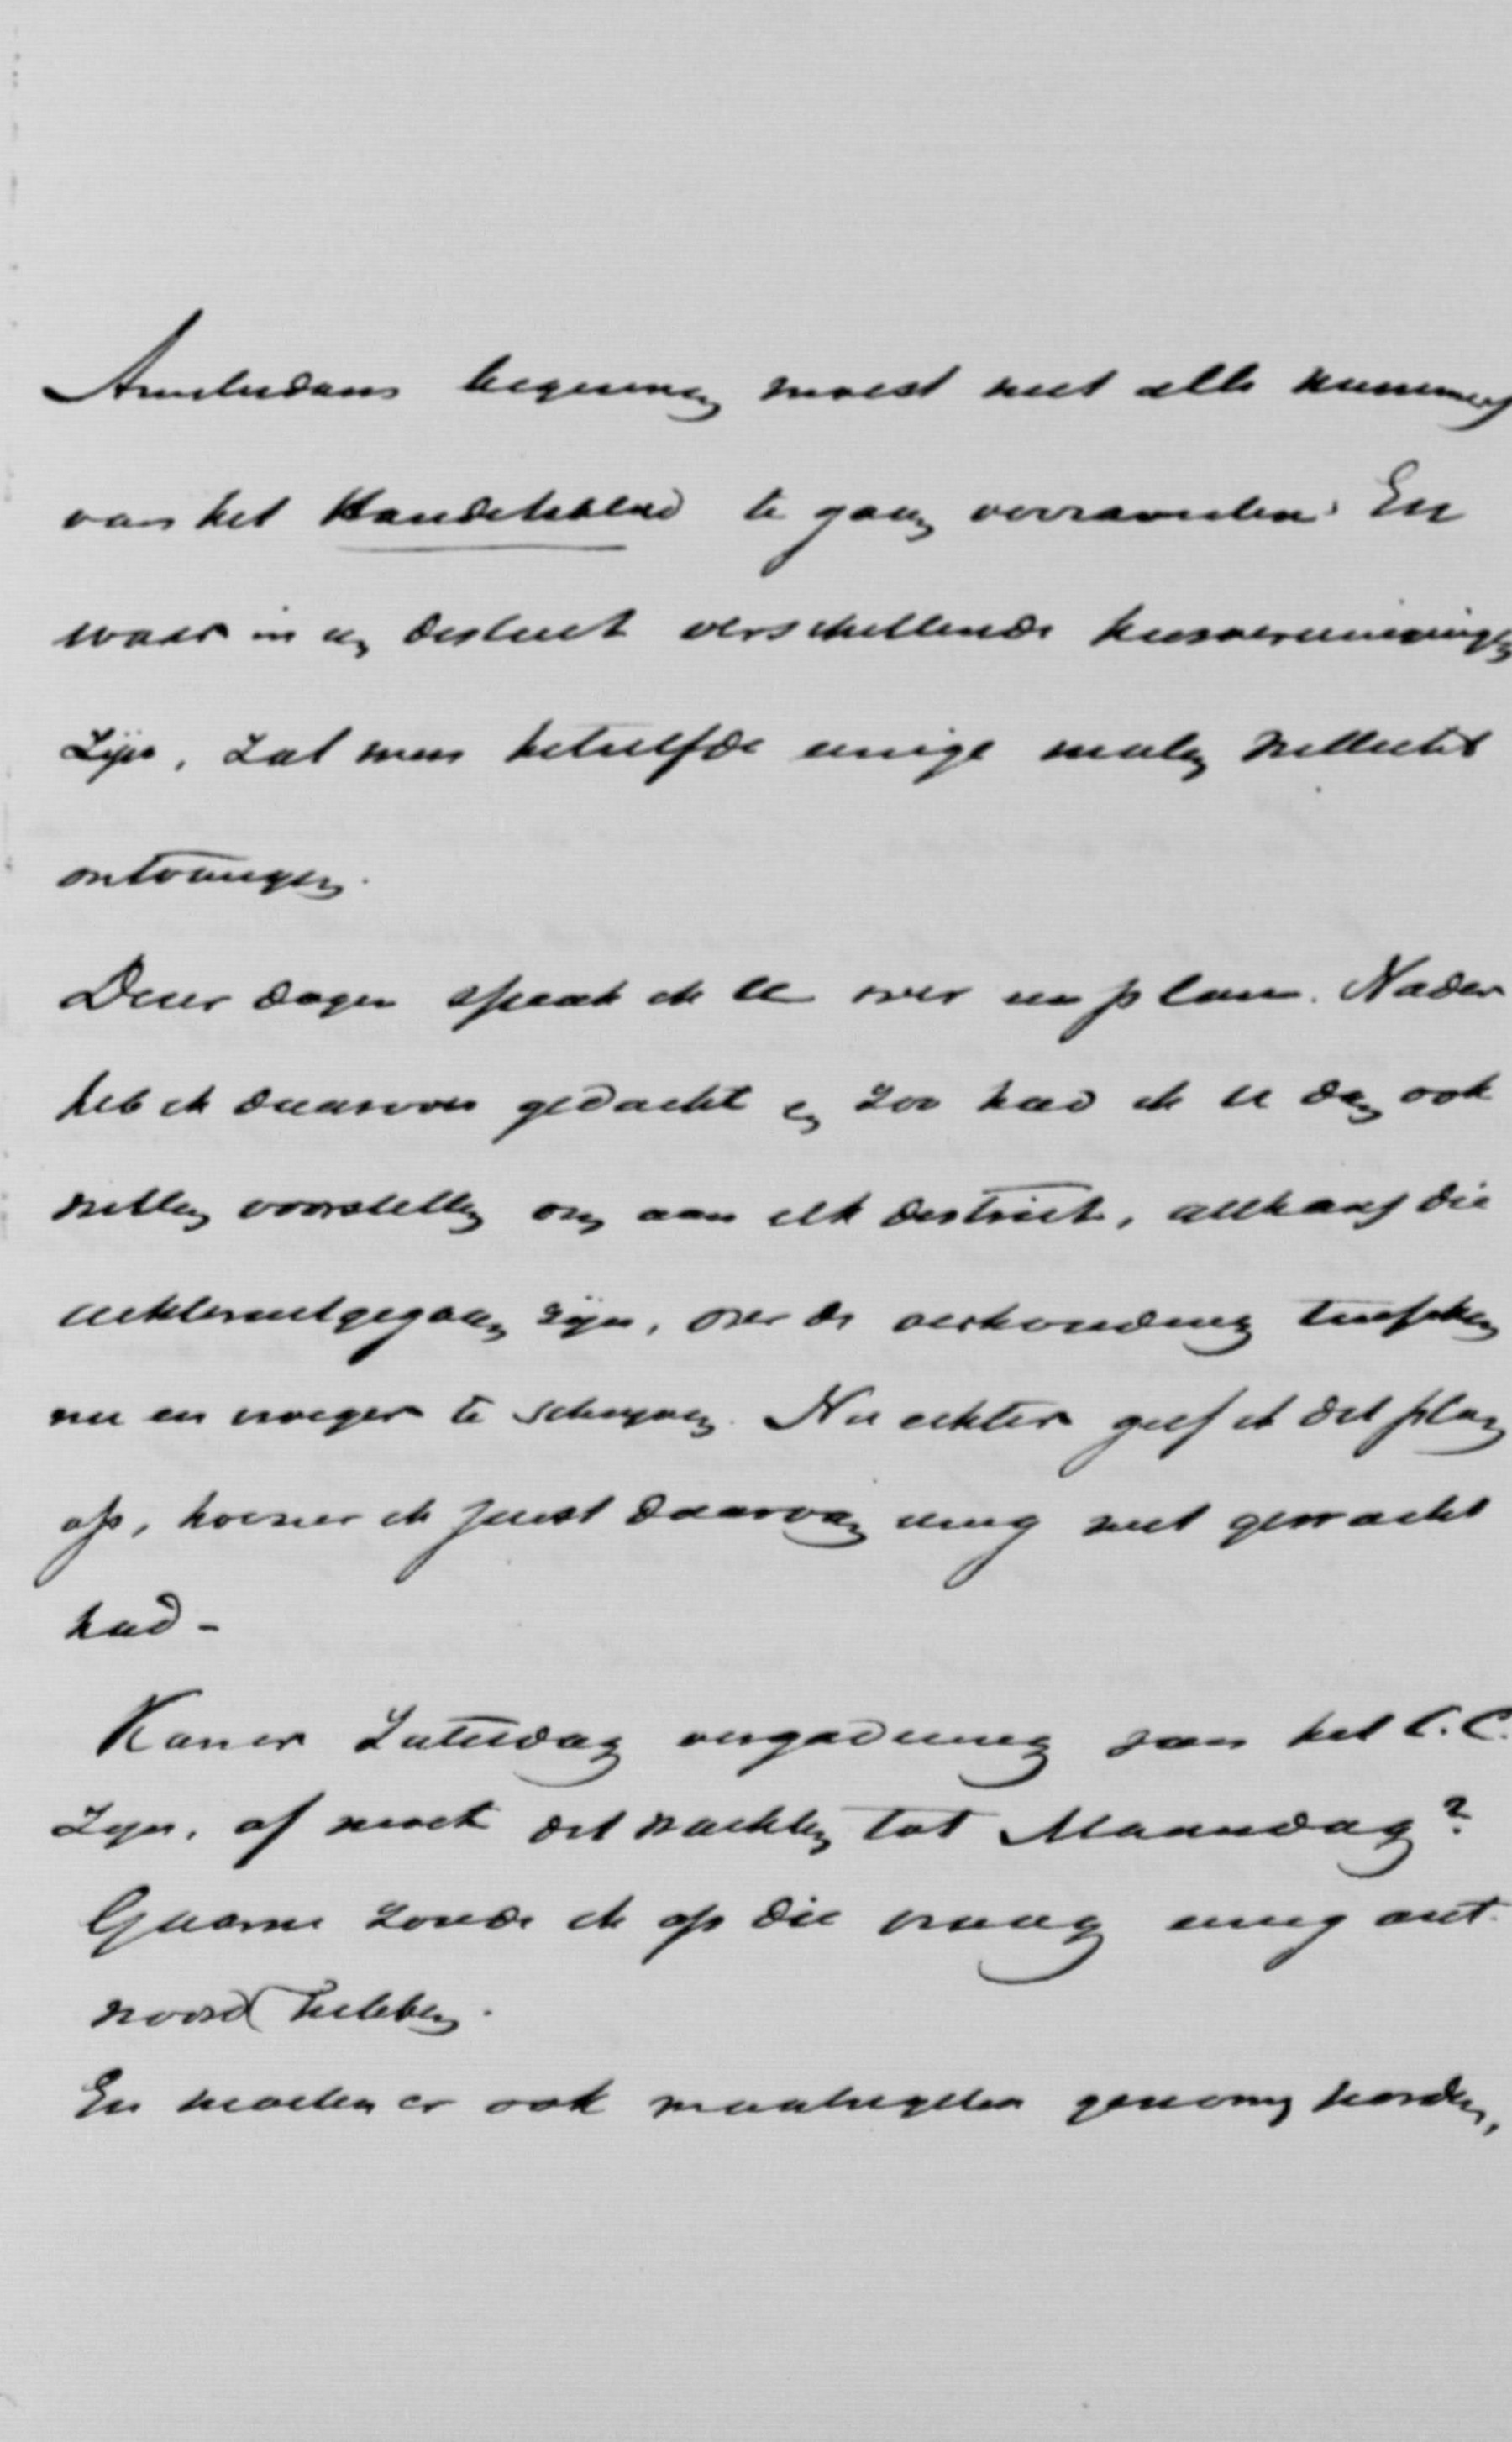 Amsterdam begrening moest met alle nummers
van het Handelsblad te gaan verzamelen. En
waar in een district verschillende kiesvereenigingen
zijn, zal men hetzelfde eenige malen wellicht
ontvangen.
Dezer dagen sprak ik U over een plan. Nader
heb ik daarover gedacht en zoo had ik U dan ook
willen voorstellen om aan elk district, althans die
achteruitgegaan zijn, over de verhouding tusschen
nu en vroeger te schrijven. Nu echter geef ik dit plan
op, hoezeer ik juist daarvan eenig nut gewacht
had -
Kan er Zaterdag vergadering van het C.C.
zijn, of moet dit wachten tot Maandag?
Gaarne zoude ik op die vraag eenig ant-
woord hebben.
En moeten er ook maatregelen genomen worden,